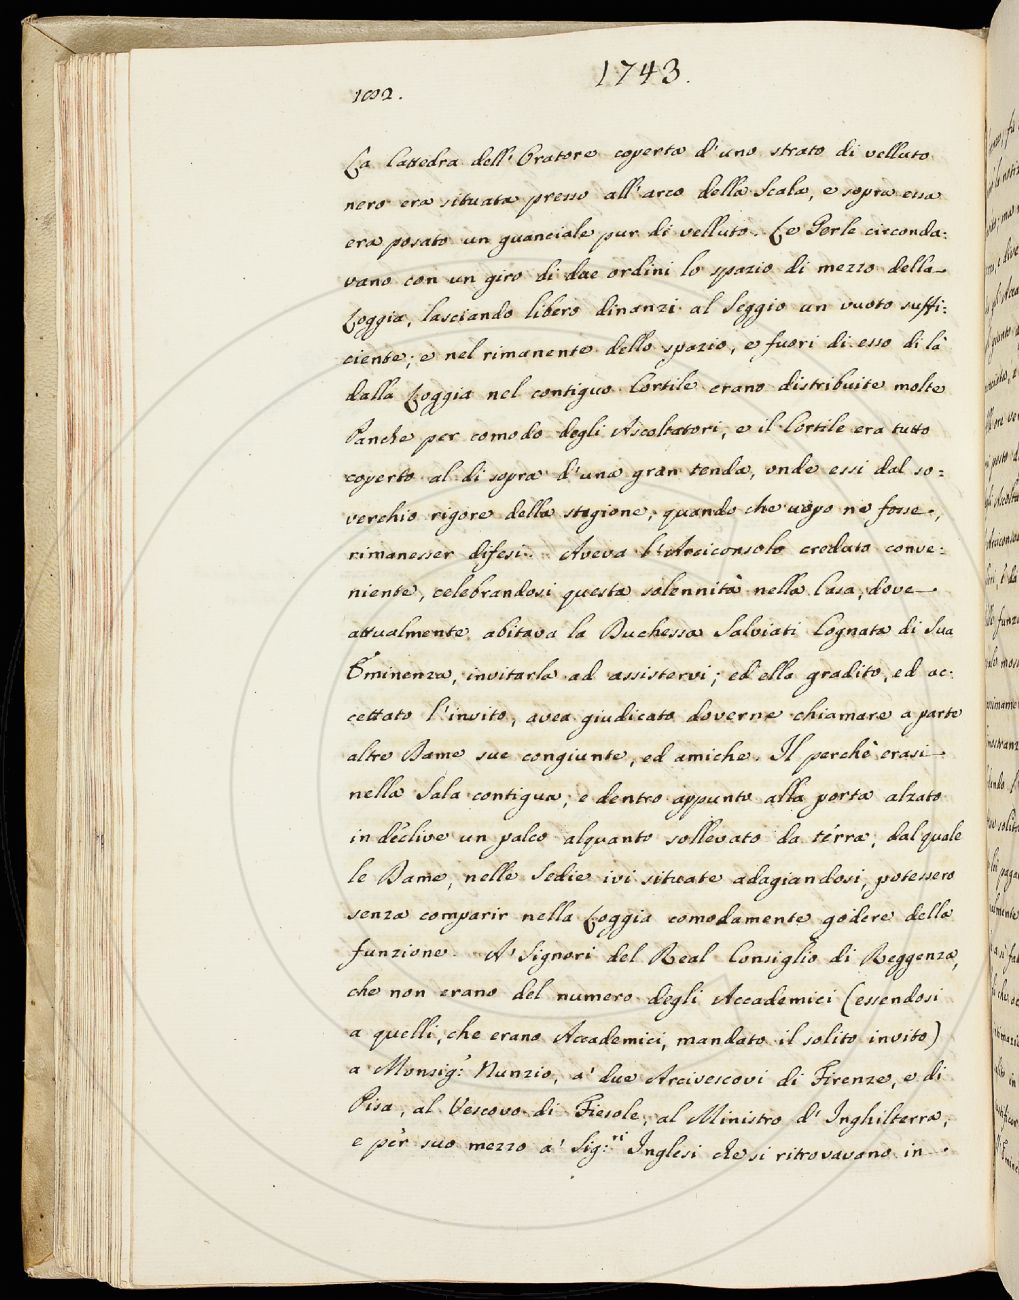 1743.
1002.
La Cattedra dell' Oratore coperta d'uno strato di velluto
nero era situata presso all'arco della Scala, e sopra essa
era posato un guanciale pur di velluto. Le Gerle circonda:
vano con un giro di due ordini lo spazio di mezzo della
Loggia, lasciando libero dinanzi al Seggio un vuoto suffi:
ciente; e nel rimanente dello spazio, e fuori di esso di là
dalla Loggia nel contiguo Cortile erano distribuite molte
Panche per comodo degli Ascoltatori, e il Cortile era tutto
coperto al di sopra d'una gran tenda, onde essi dal so:
verchio rigore della stagione, quando che uopo ne fosse,
rimanesser difesi. Aveva l'Arciconsolo creduto conve:
niente, celebrandosi questa solennità nella Casa, dove
attualmente abitava la Duchessa Salviati Cognata di Sua
Eminenza, invitarla ad assistervi; ed ella gradito, ed ac:
cettato l'invito, avea giudicato doverne chiamare a parte
altre Dame sue congiunte, ed amiche. Il perchè erasi
nella Sala contigua, e dentro appunto alla porta alzato
in declive un palco alquanto sollevato da terra, dal quale
le Dame, nelle Sedie ivi situate adagiandosi, potessero
senza comparir nella Loggia comodamente godere della
funzione. A' Signori del Real Consiglio di Reggenza,
che non erano del numero degli Accademici (essendosi
a quelli, che erano Accademici, mandato il solito invito)
a Monsig.r Nunzio, a' due Arcivescovi di Firenze, e di
Pisa, al Vescovo di Fiesole, al Ministro d'Inghilterra,
e per suo mezzo a' Sig:ri Inglesi che si ritrovavano in